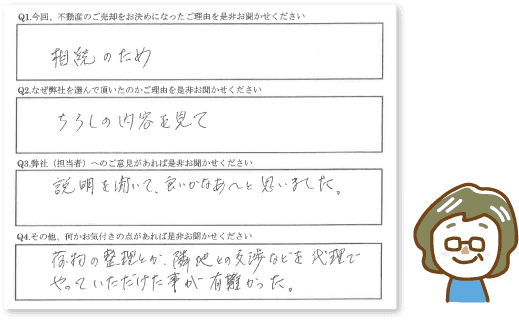 Q1.今回、不動産のご売却をお決めになったご理由を是非お聞かせください
相続のため
Q2.なぜ弊社を選んで頂いたのかご理由を是非お聞かせください
ちらしの内容を見て
Q3.弊社（担当者）へのご意見があれば是非お聞かせください
説明を聞いて、良いかなあ〜と思いました。
Q4.その他、何かお気付きの点があれば是非お聞かせください
荷物の整理とか、隣地との交渉などを代理で
やっていただけた事が有難かった。